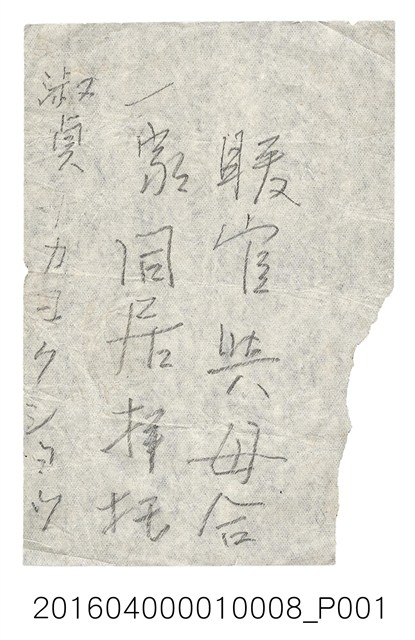 暖官與母合
一家同居擇托
淑貞 リカヨクショウウ
201604000010008_P001